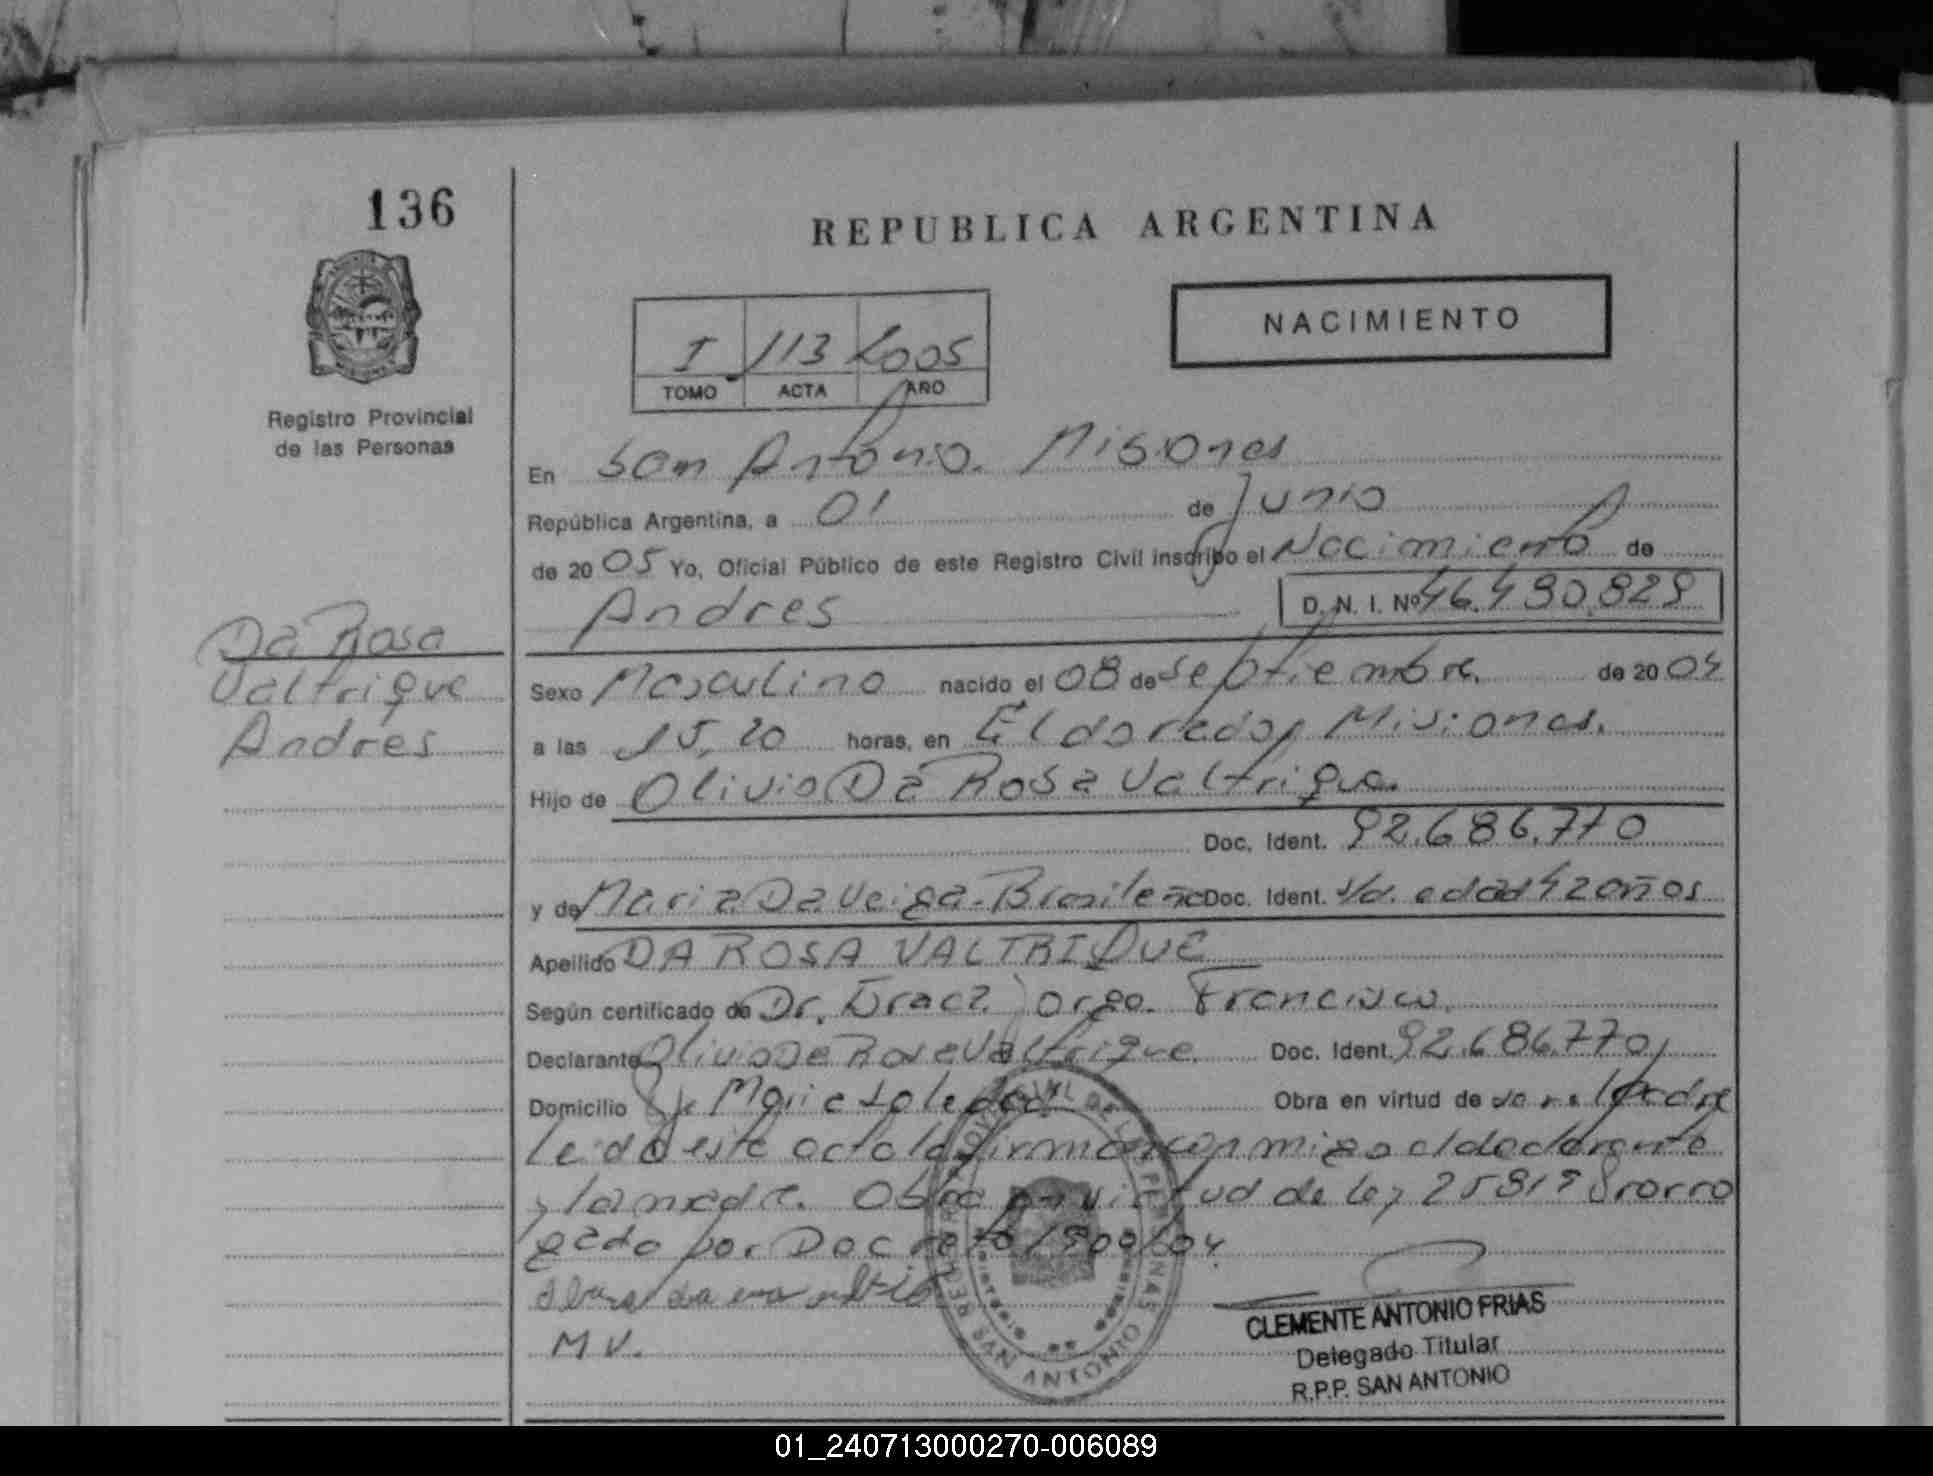 136
REPUBLICA ARGENTINA
NACIMIENTO
I 113 2005
TOMO ACTA AÑO
Registro Provincial
de las Personas
En San Antonio. Misiones
República Argentina, a 01 de Junio
de 2005 Yo, Oficial Público de este Registro Civil inscribo el Nacimiento de
Andres D. N. I. Nº 46.490.829
Da Rosa
Valtrique
Andres
Sexo Masculino nacido el 08 de septiembre. de 2004
a las 15,20 horas, en Eldorado, Misiones.
Hijo de Olivio Da Rosa Valtrique.
Doc. Ident. 92.686.770
y de Maria Da Veiga - Brasileña Doc. Ident. s/d. edad 42 años
Apellido DA ROSA VALTRIQUE
Según certificado de Dr. Jorge Francisco.
Declarante Olivio Da Rosa Valtrique Doc. Ident. 92.686.770
Domicilio Maria Soledad Obra en virtud de ser el padre
leida este acta la firman conmigo el declarante
y la madre. Obra en virtud de ley 25819 Prorro
gado por Decreto 1900/04
M V.
CLEMENTE ANTONIO FRIAS
Delegado Titular
R.P.P. SAN ANTONIO
01_240713000270-006089